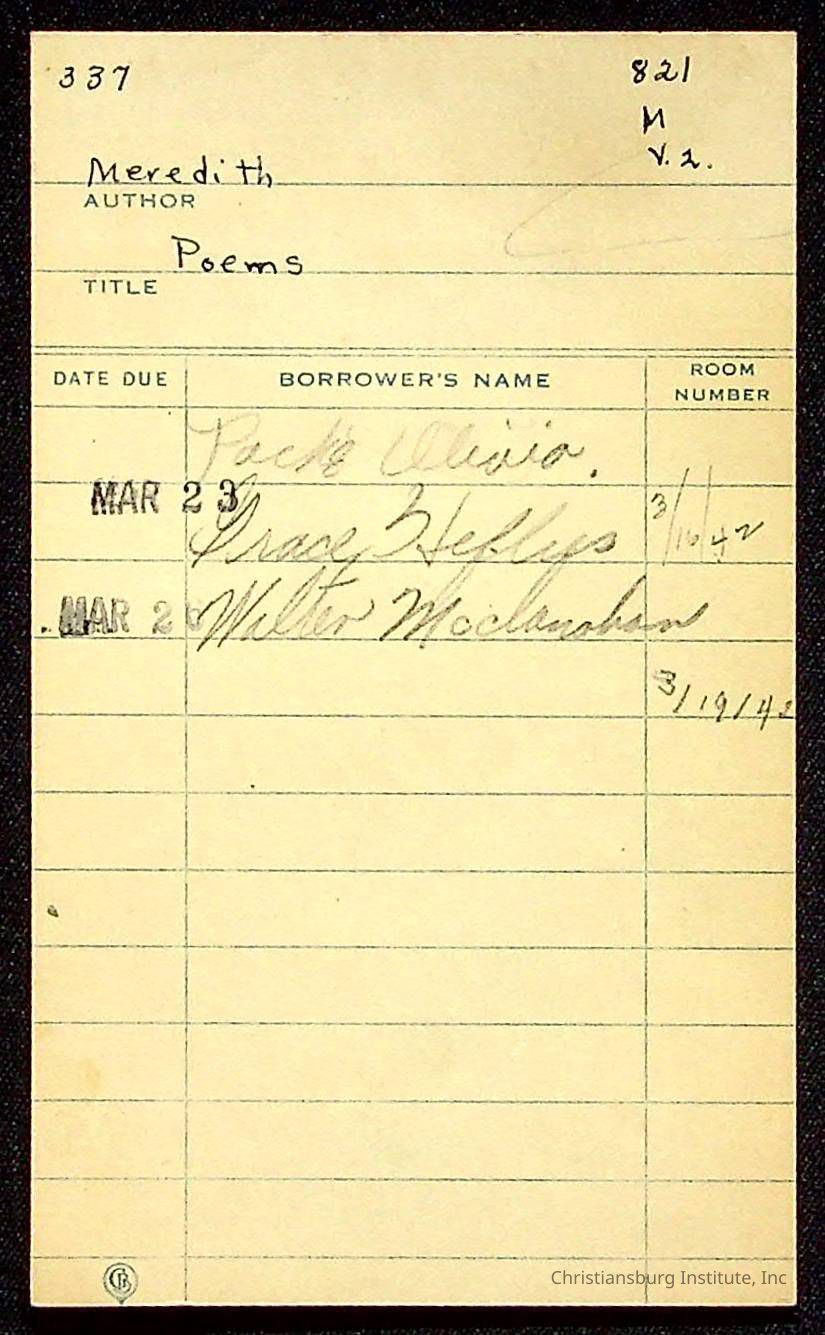 337
821
M
V. 2.
Meredith
AUTHOR
Poems
TITLE
DATE DUE
BORROWER'S NAME
ROOM NUMBER
Olivia.
MAR 23 Grace Heflys 3/16/42
MAR 26 Walter Mcclanahan
3/19/42
Christiansburg Institute, Inc